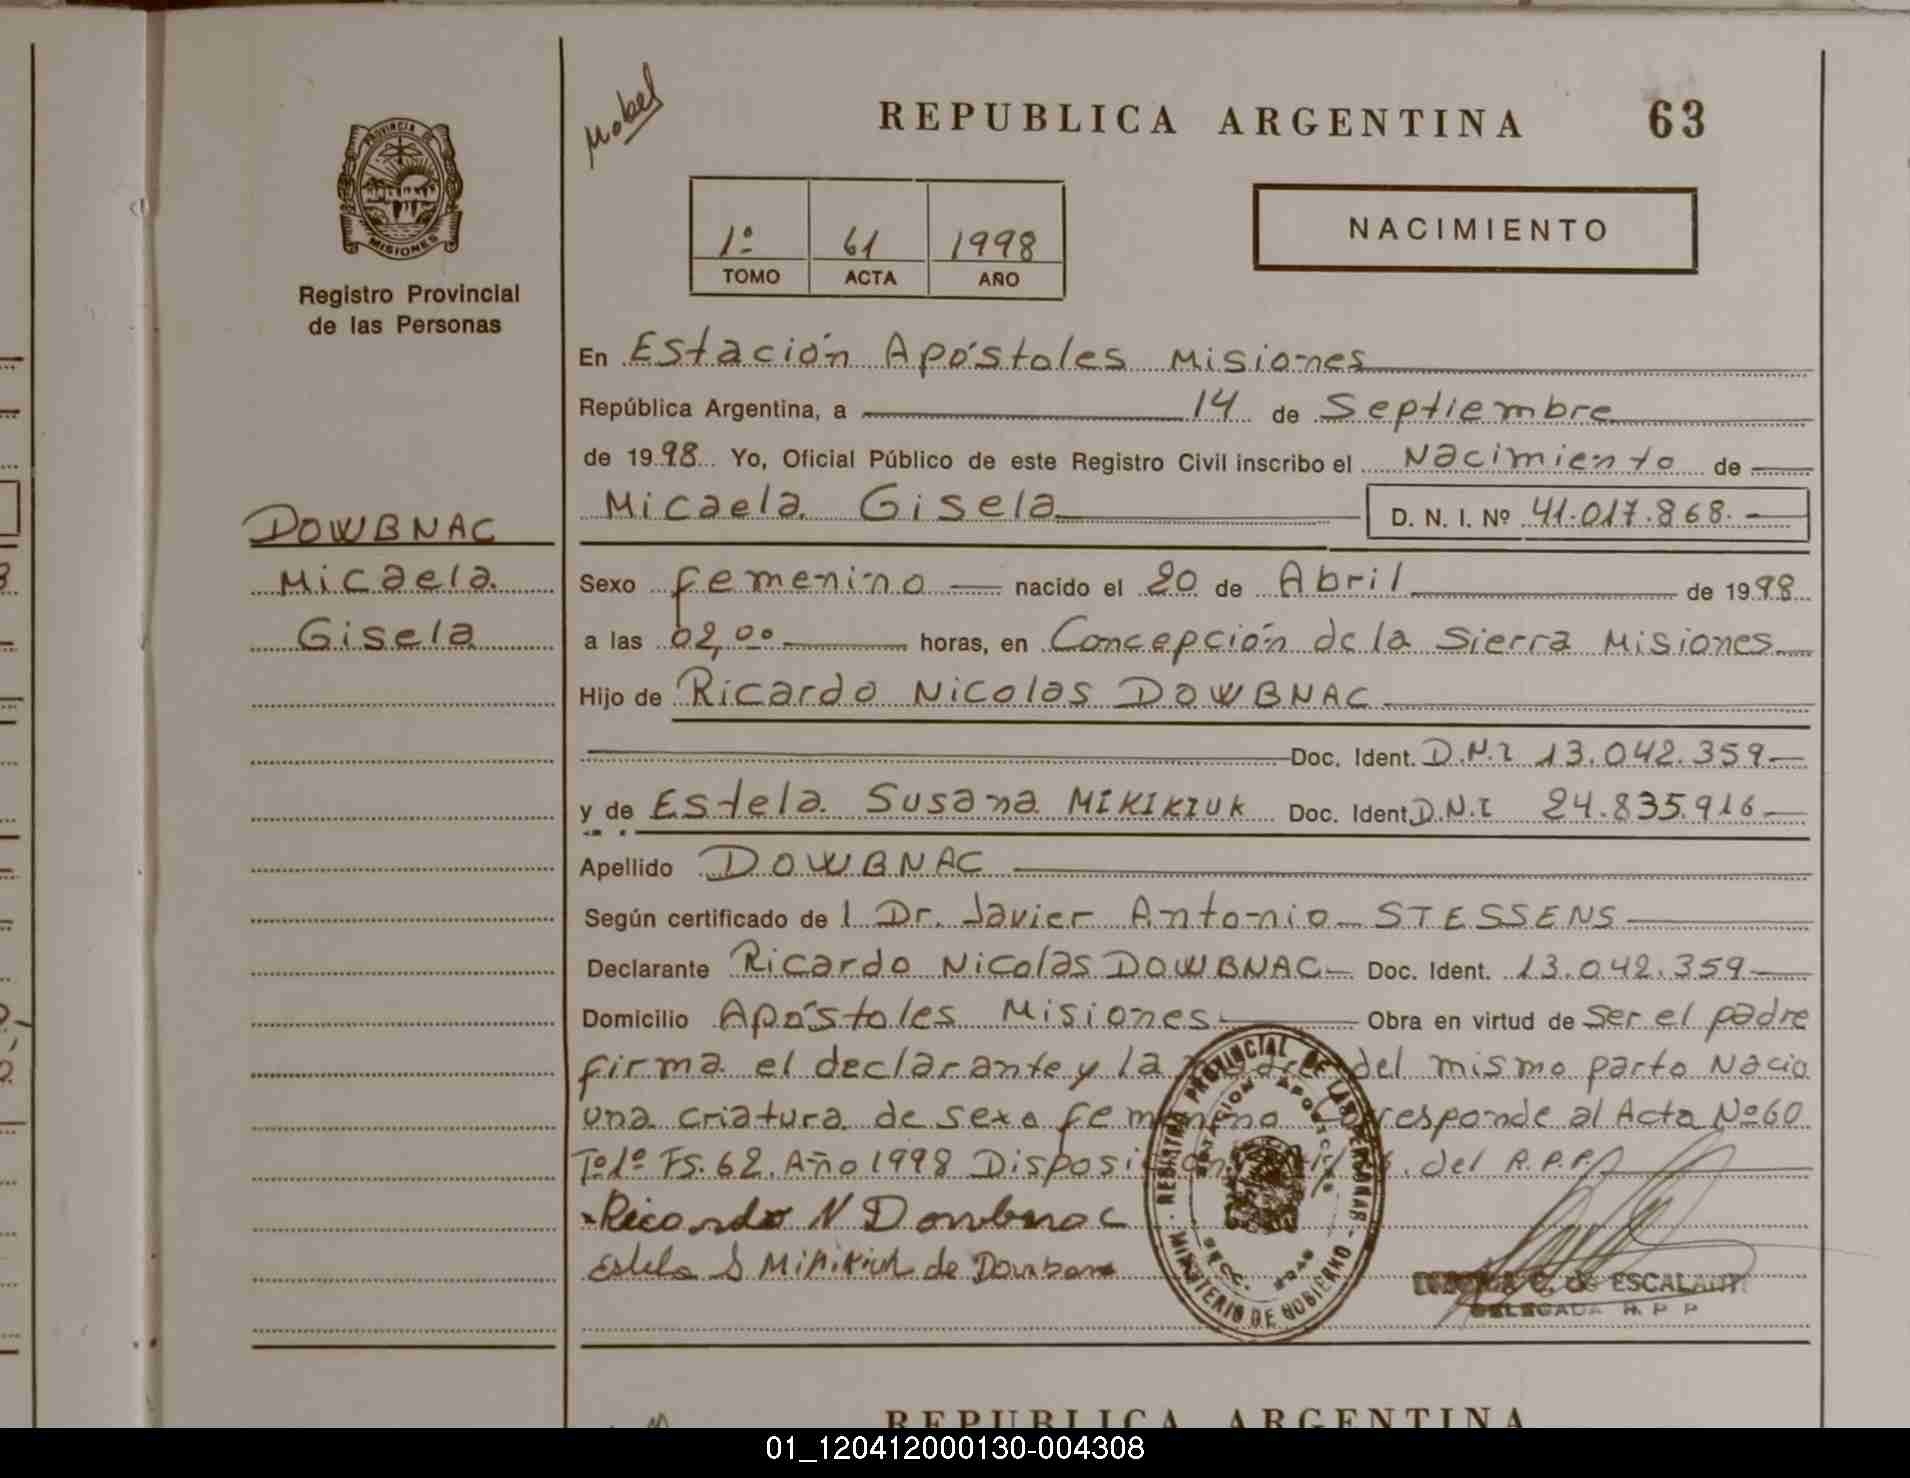 Mobel
REPUBLICA ARGENTINA 63
PROVINCIA DE
MISIONES
Registro Provincial
de las Personas
1º 61 1998
TOMO ACTA AÑO
NACIMIENTO
En Estación Apóstoles Misiones
República Argentina, a 14 de Septiembre
de 1998 Yo, Oficial Público de este Registro Civil inscribo el Nacimiento de
Micaela Gisela D. N. I. Nº 41.017.868.
DOWBNAC
Micaela
Gisela
Sexo femenino nacido el 20 de Abril de 1998
a las 02,00 horas, en Concepción de la Sierra Misiones
Hijo de Ricardo Nicolas DOWBNAC
Doc. Ident. D.N.I 13.042.359
y de Estela Susana MIKIKIUK Doc. Ident D.N.I 24.835.916
Apellido DOWBNAC
Según certificado de l Dr. Javier Antonio STESSENS
Declarante Ricardo Nicolas DOWBNAC Doc. Ident. 13.042.359
Domicilio Apóstoles Misiones Obra en virtud de ser el padre
firma el declarante y la madre del mismo parto Nacio
una criatura de sexo femenino Corresponde al Acta Nº 60
Tº 1º Fs. 62. Año 1998 del R.P.P.
Ricardo N Dowbnac
Estela S Mikikiuk de Dowbnac
REGISTRO PROVINCIAL DE LAS PERSONAS
MINISTERIO DE GOBIERNO
ESTACION APOSTOLES
SECC.
C. de ESCALANTE
DELEGADA R. P. P
REPUBLICA ARGENTINA
01_120412000130-004308